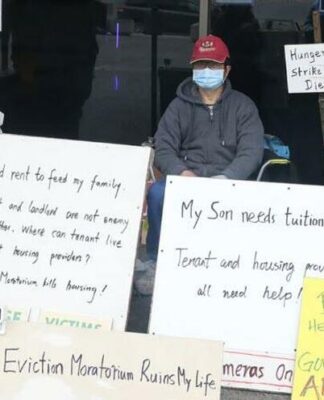 Hunger
Strike
Die
d rent to feed my family.
t and landlord are not enemy
Where can tenant live
t housing providers?
Moratorium kills housing!
My Son needs tuition
Tenant and housing prov
all need help!
SE VICTIMS
Eviction Moratorium Ruins My Life
meras On
He
GO
A